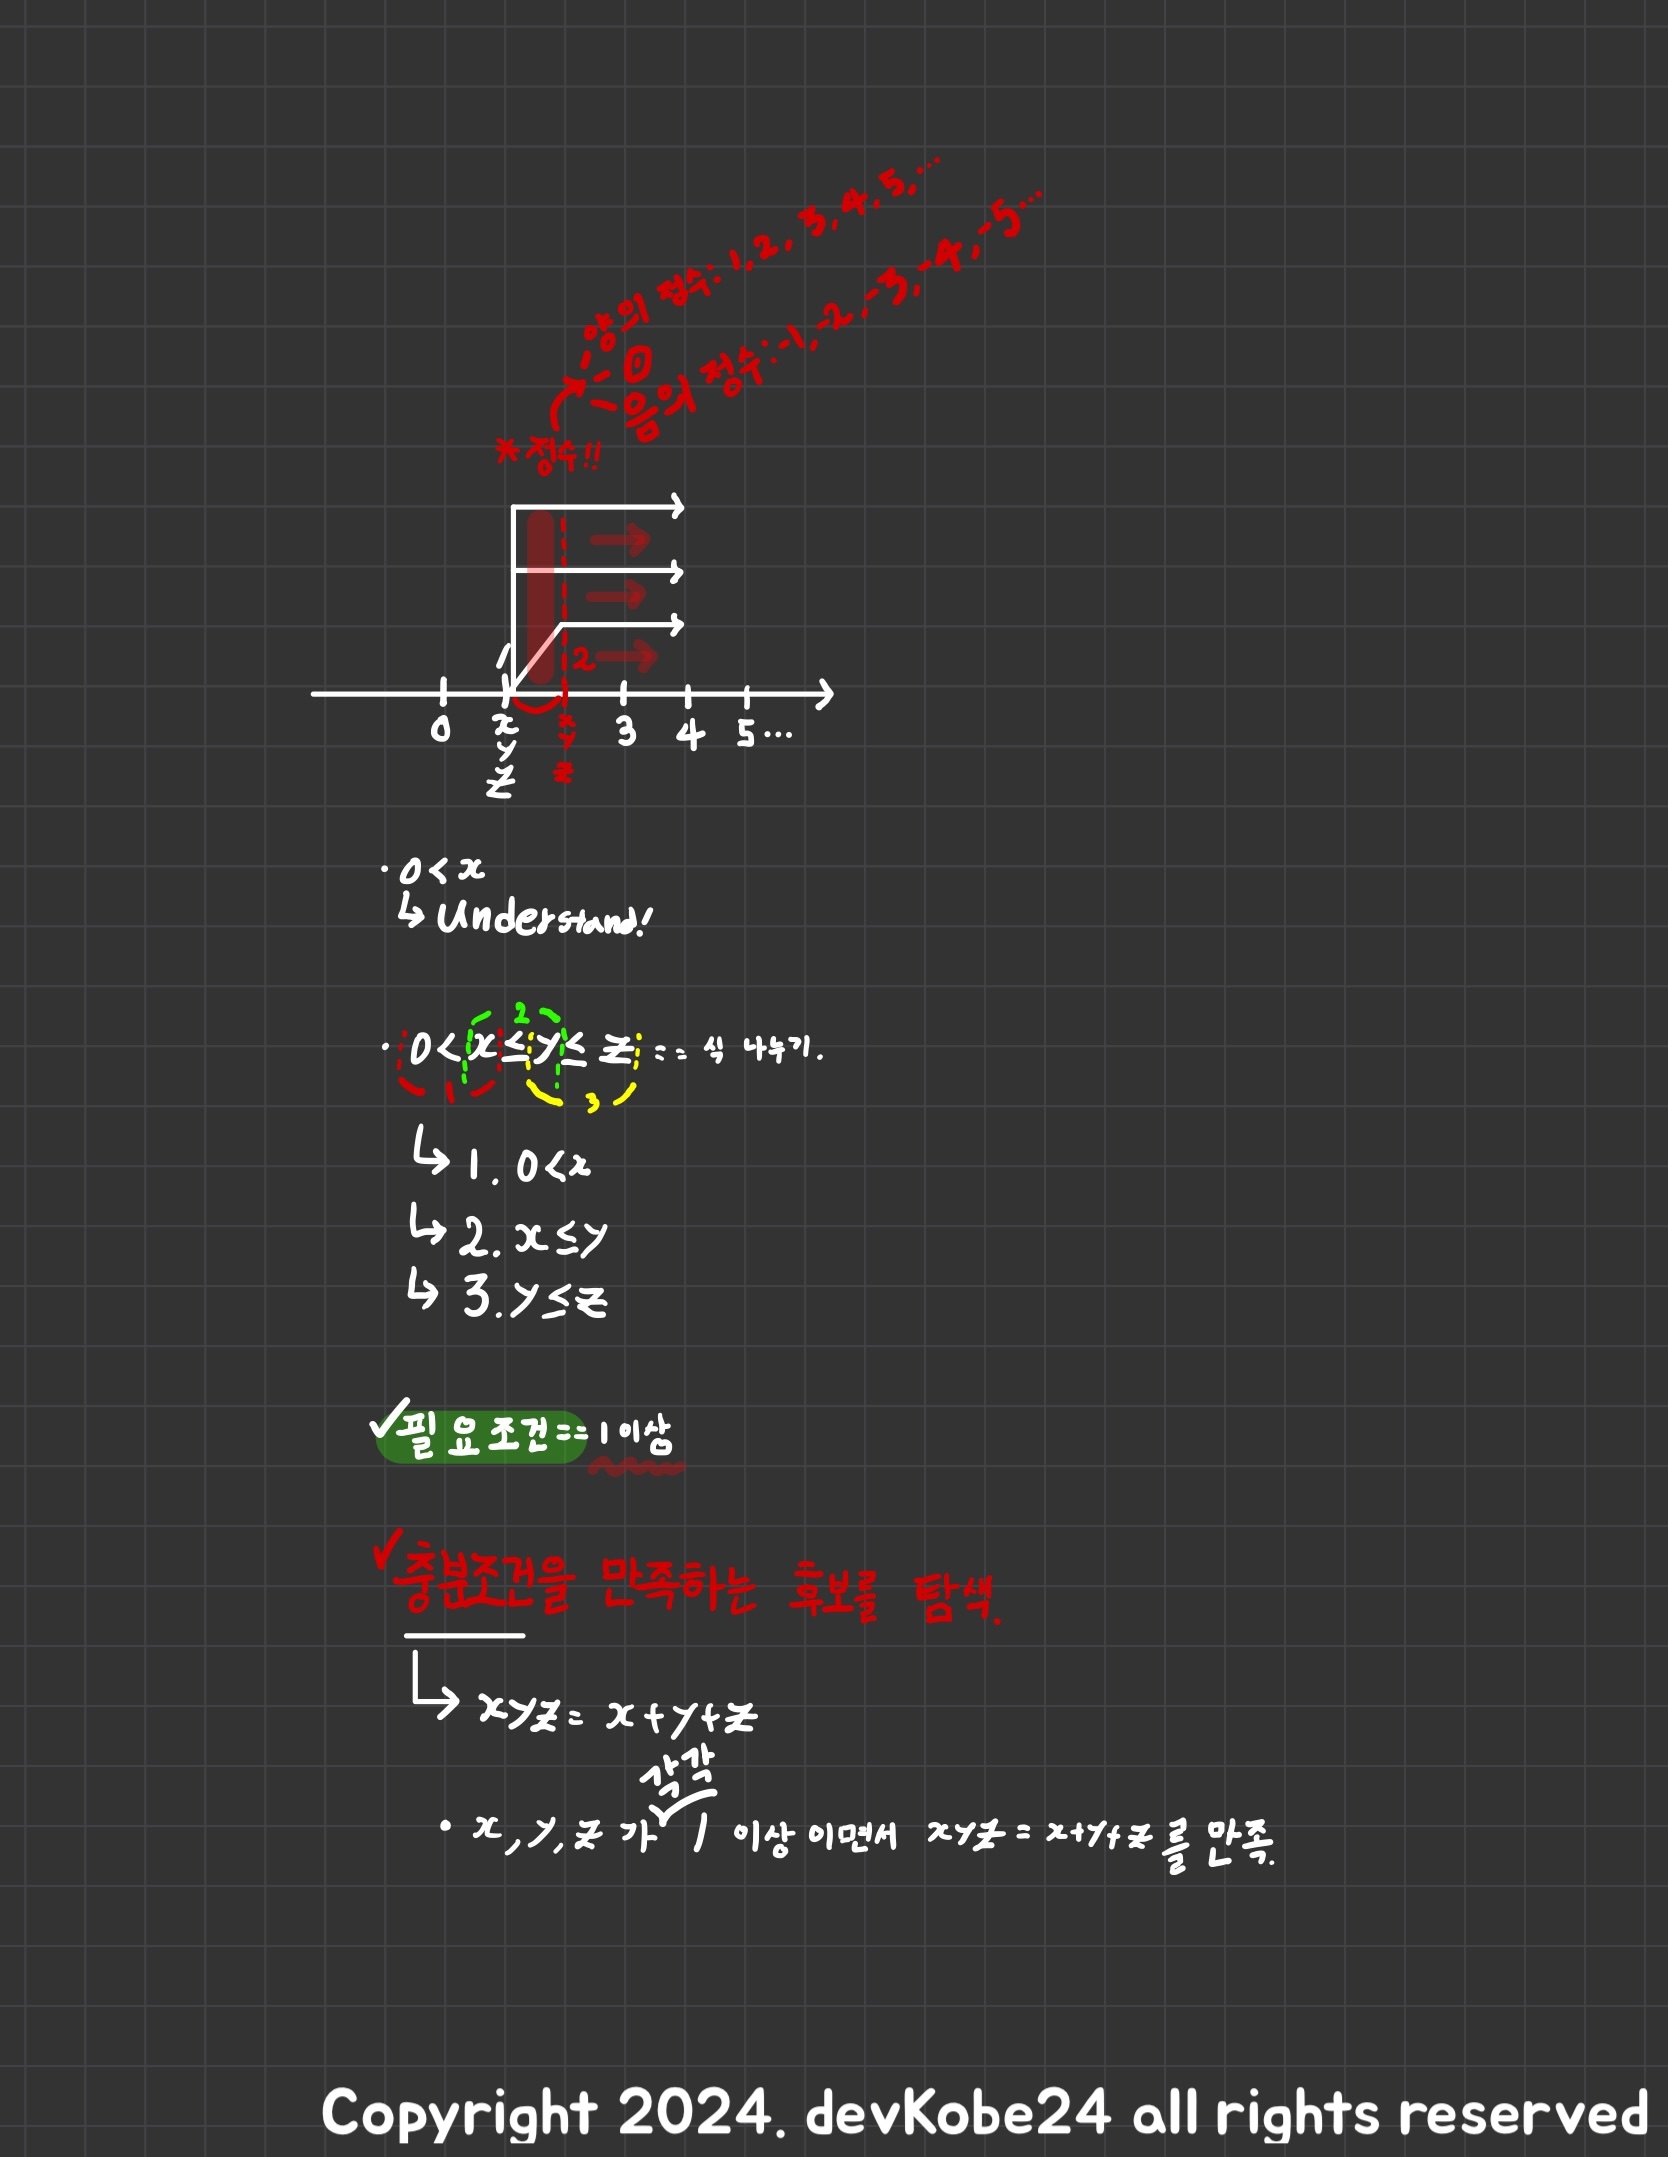 - 양의 정수: 1, 2, 3, 4, 5, ...
- 0
- 음의 정수: -1, -2, -3, -4, -5 ...
* 정수!!
1
2
0 x x 3 4 5 ...
y y
z z
· 0 < x
↳ Understand!
2
· 0 < x ≤ y ≤ z == 식 나누기.
1 3
↳ 1. 0 < x
↳ 2. x ≤ y
↳ 3. y ≤ z
✓ 필요조건 == 1 이상
✓ 충분조건을 만족하는 후보를 탐색.
↳ xyz = x + y + z
각각
· x, y, z 가 1 이상 이면서 xyz = x+y+z 를 만족.
Copyright 2024. devKobe24 all rights reserved